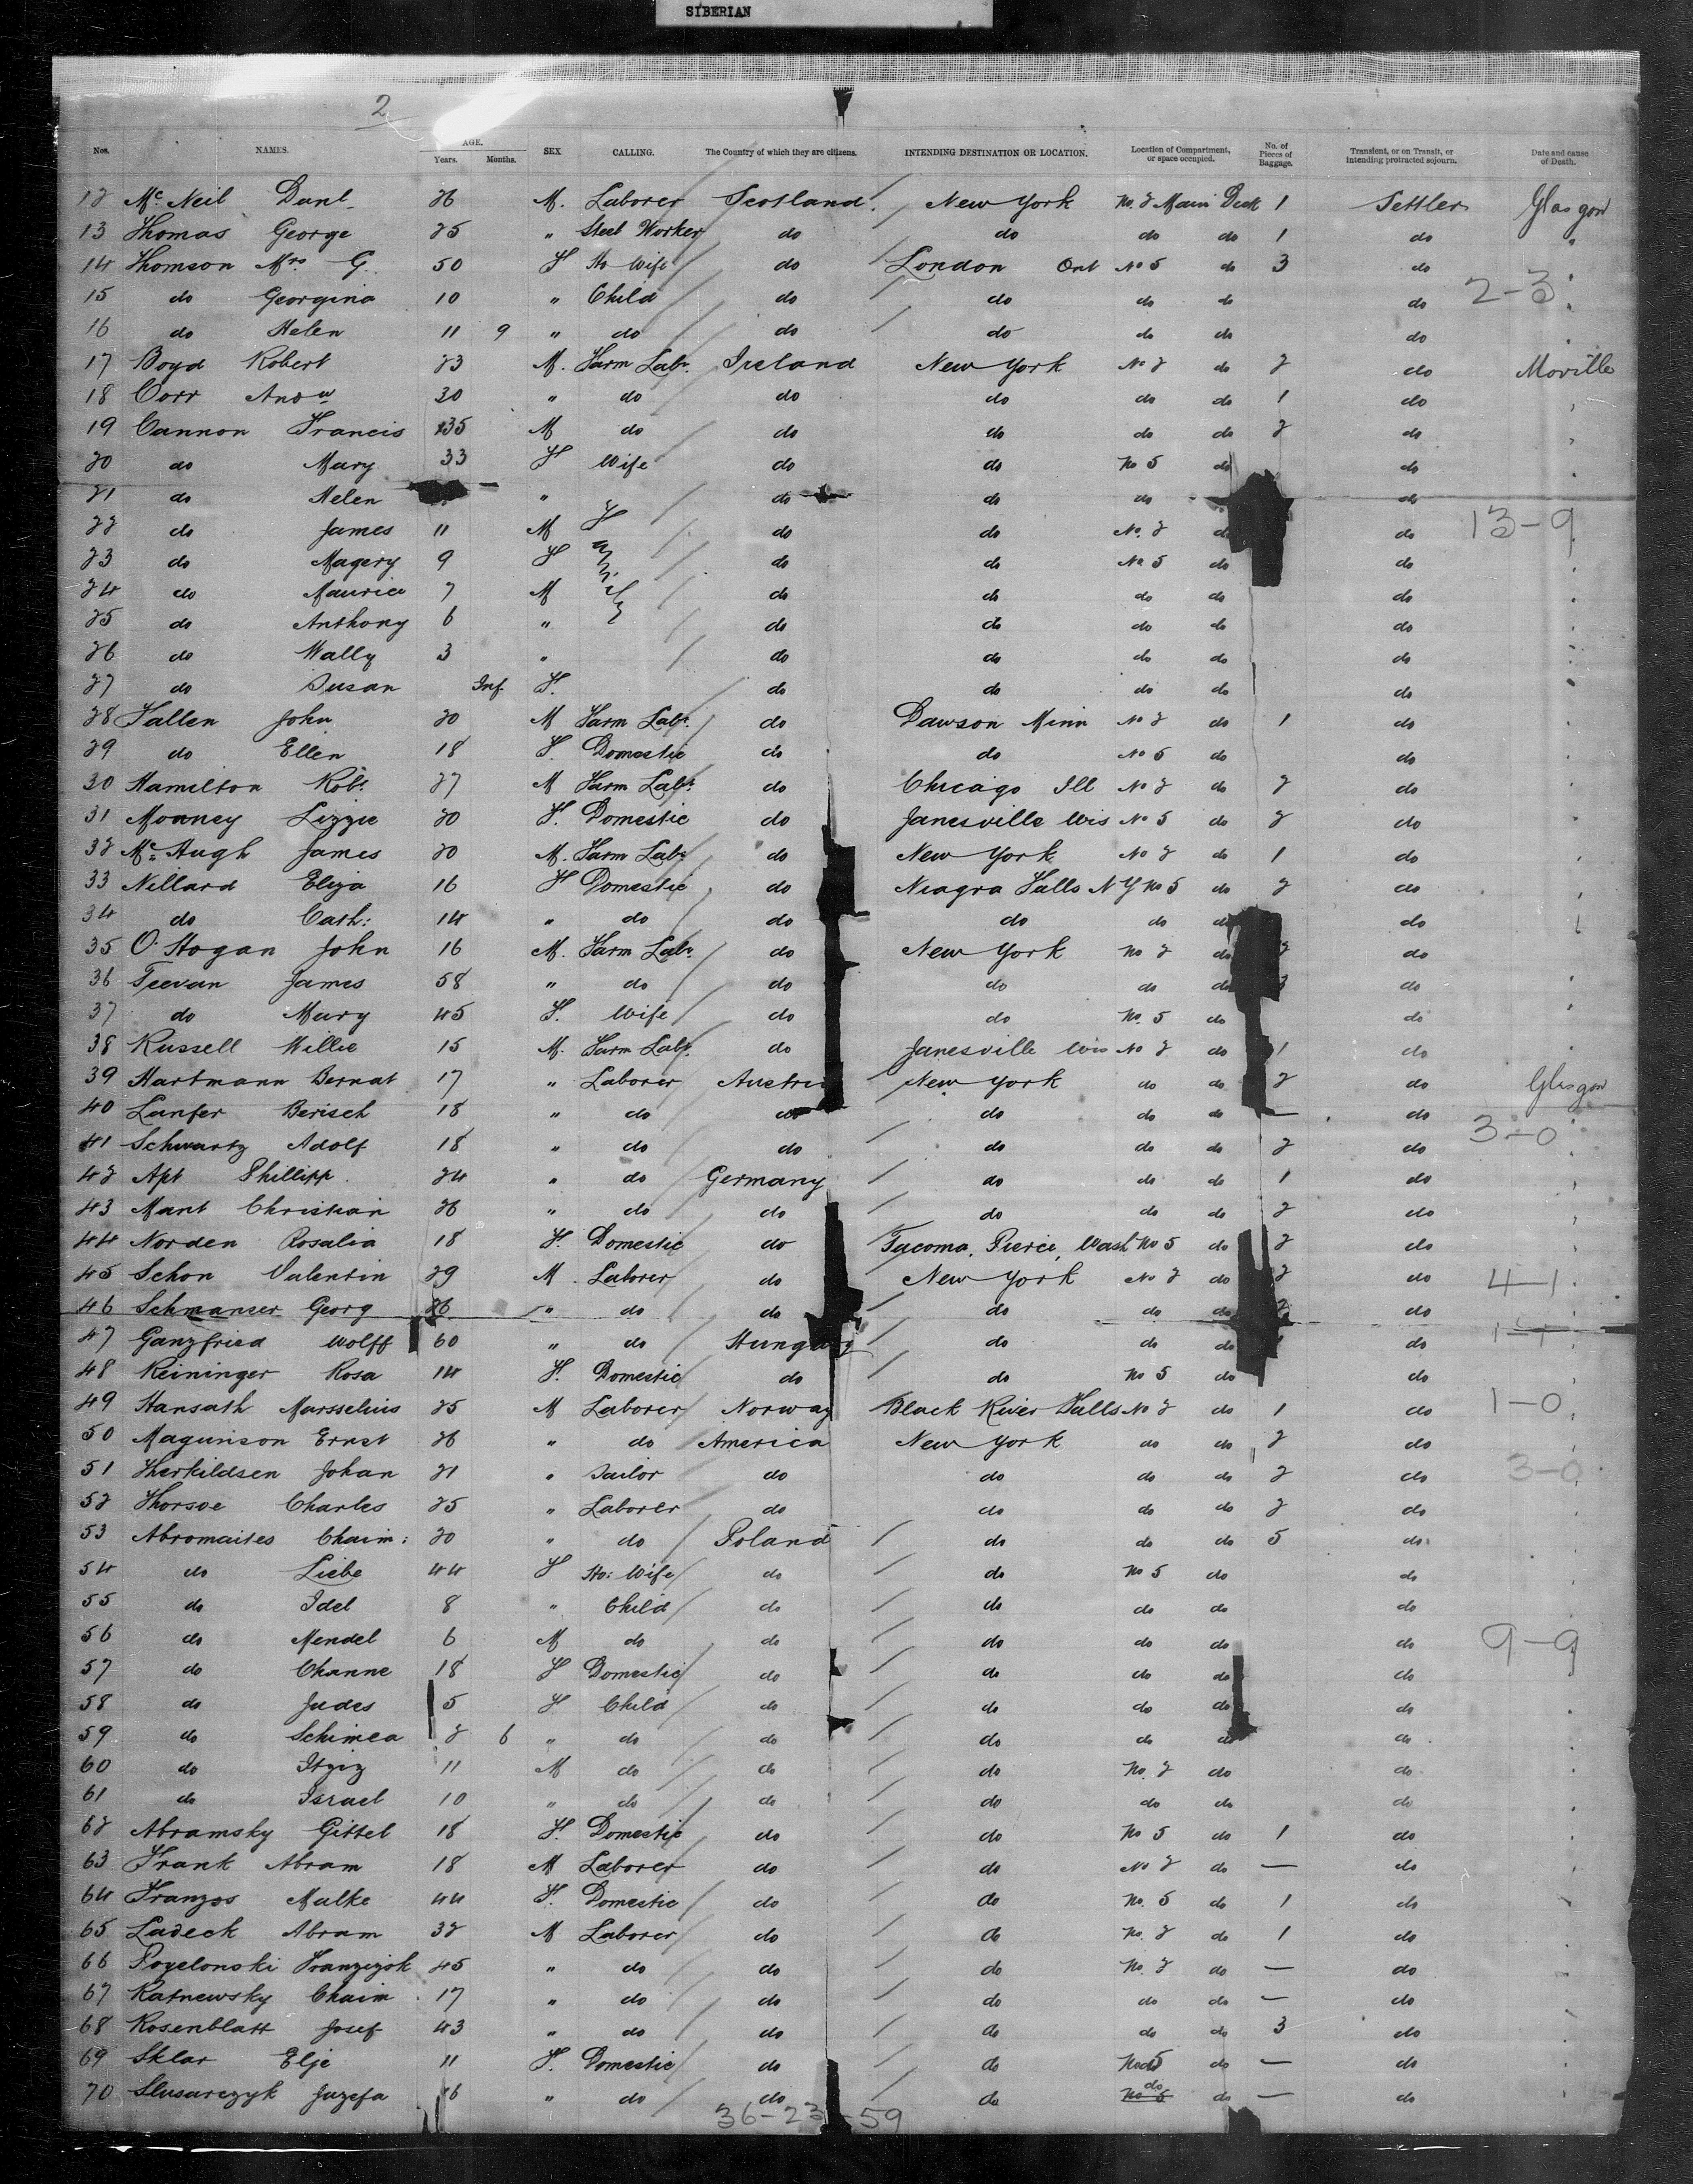 SIBERIAN
2
Nos. NAMES. AGE. Years. Months. SEX CALLING. The Country of which they are citizens. INTENDING DESTINATION OR LOCATION. Location of Compartment, or space occupied. No. of Pieces of Baggage. Transient, or on Transit, or intending protracted sojourn. Date and cause of Death.
12 McNeil Danl 26 M. Laborer Scotland. New York No. 2 Main Deck 1 Settler Glasgow
13 Thomas George 25 " Steel Worker do do do do 1 do "
14 Thomson Mrs G. 50 F Ho Wife do London Ont No 5 do 3 do
15 do Georgina 10 " Child do do do do do 2-3
16 do Helen 11 9 " do do do do do do
17 Boyd Robert 23 M. Farm Labr. Ireland New York No 2 do 2 do Moville
18 Corr Andw 30 " do do do do do 1 do
19 Cannon Francis 35 M do do do do do 2 do
20 do Mary 33 F Wife do do No 5 do do
21 do Helen " do do do do
22 do James 11 M Family do do No. 2 do do 13-9
23 do Magery 9 F do do No 5 do do
24 do Maurice 7 M do do do do do
25 do Anthony 6 " do do do do do
26 do Wally 3 " do do do do do
27 do Susan Inf. F. do do do do do
28 Fallen John 20 M Farm Labr. do Dawson Minn No 2 do 1 do
29 do Ellen 18 F. Domestic do do No 5 do do
30 Hamilton Robt. 27 M Farm Labr. do Chicago Ill No 2 do 2 do
31 Mooney Lizzie 20 F. Domestic do Janesville Wis No 5 do 2 do
32 McHugh James 20 M. Farm Labr do New York No 2 do 1 do
33 Nellard Eliza 16 F Domestic do Niagra Falls N Y No 5 do 2 do
34 do Cath: 14 " do do do do do do
35 O'Hogan John 16 M. Farm Labr. do New York No 2 do 2 do
36 Teevan James 58 " do do do do do 3 do
37 do Mary 45 F. Wife do do No. 5 do do
38 Russell Willie 15 M. Farm Labr. do Janesville Wis No 2 do 1 do
39 Hartmann Bernat 17 " Laborer Austria New York do do 2 do Glasgow
40 Lanfer Berisch 18 " do do do do do — do
41 Schwartz Adolf 18 " do do do do do 2 do 3-0
42 Apt Phillipp. 24 " do Germany do do do 1 do
43 Mant Christian 26 " do do do do do 2 do
44 Norden Rosalia 18 F. Domestic do Tacoma, Pierce, Wash No 5 do 2 do
45 Schon Valentin 29 M. Laborer do New York No 2 do 2 do 4-1
46 Schmanser Georg 26 " do do do do do 2 do
47 Ganzfried Wolff 60 " do Hungary do do do 1 do 1-1
48 Reininger Rosa 14 F. Domestic do do No 5 do do
49 Hansath Marsselius 25 M Laborer Norway Black River Falls No 2 do 1 do 1-0
50 Magunson Ernst 26 " do America New York do do 2 do
51 Therkildsen Johan 21 " Sailor do do do do 2 do 3-0
52 Thorsoe Charles 25 " Laborer do do do do 2 do
53 Abromaites Chaim: 20 " do Poland do do do 5 do
54 do Liebe 44 F Ho: Wife do do No 5 do do
55 do Idel 8 " Child do do do do do
56 do Mendel 6 M do do do do do do 9-9
57 do Channe 18 F Domestic do do do do do
58 do Judes 5 F Child do do do do do
59 do Schimea 2 6 " do do do do do do
60 do Itziz 11 M do do do No. 2 do do
61 do Israel 10 " do do do do do do
62 Abramsky Gittel 18 F. Domestic do do No 5 do 1 do
63 Frank Abram 18 M Laborer do do No 2 do — do
64 Franzos Malke 44 F. Domestic do do No. 5 do 1 do
65 Ladeck Abram 32 M Laborer do do No. 2 do 1 do
66 Pogelonski Franzizok 45 " do do do No. 2 do — do
67 Ratnewsky Chaim 17 " do do do do do — do
68 Rosenblatt Josef 43 " do do do do do 3 do
69 Sklar Elje 11 F. Domestic do do No 5 do — do
70 Slusarczyk Juzefa 16 " do do do No 5 do do — do
36-23-59